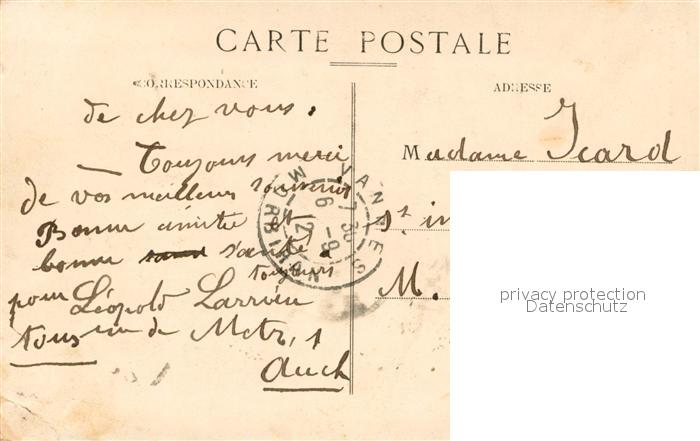 CARTE POSTALE
CORRESPONDANCE
ADRESSE
de chez vous.
— Toujours merci
de vos meilleurs souvenirs
Bonne amitié et
bonne santé à
toujours
pour Léopold Larrieu
tous rue de Metz, 1
Auch
Madame Icard
M.
VANNES
MORBIHAN
7 30
6 - 9
12
privacy protection
Datenschutz